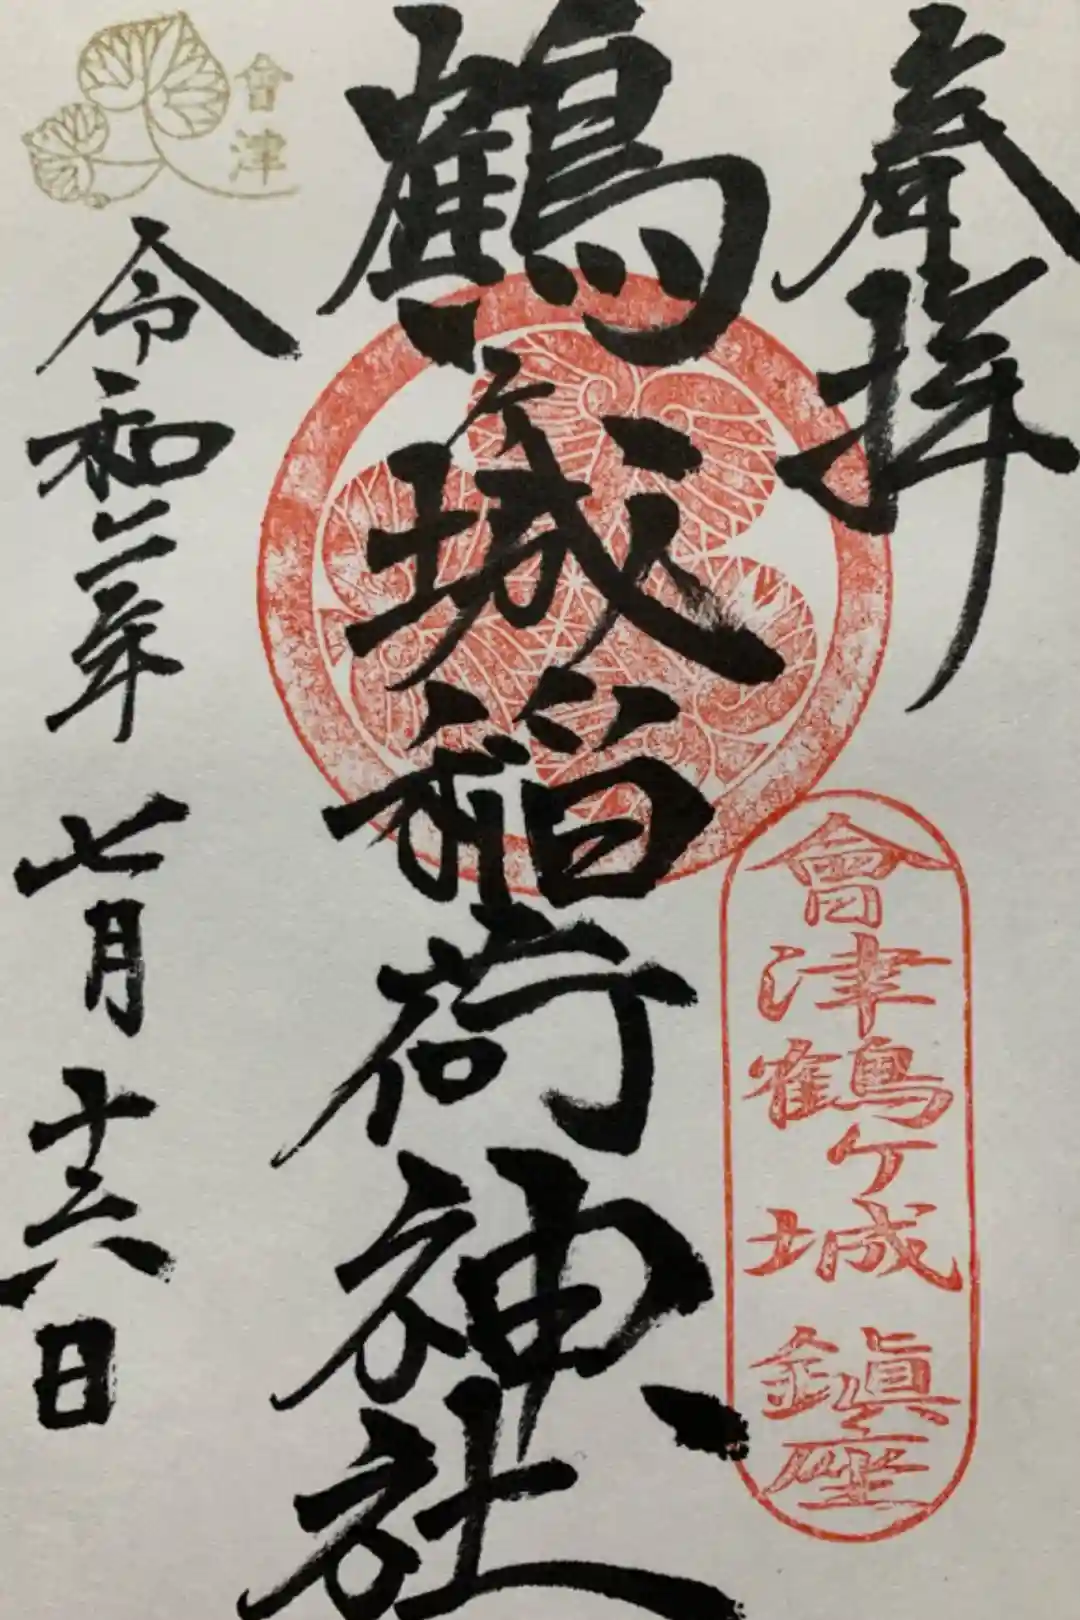 奉拝
會津鶴ヶ城鎮座
鶴ヶ城稲荷神社
會津
令和二年七月十六日